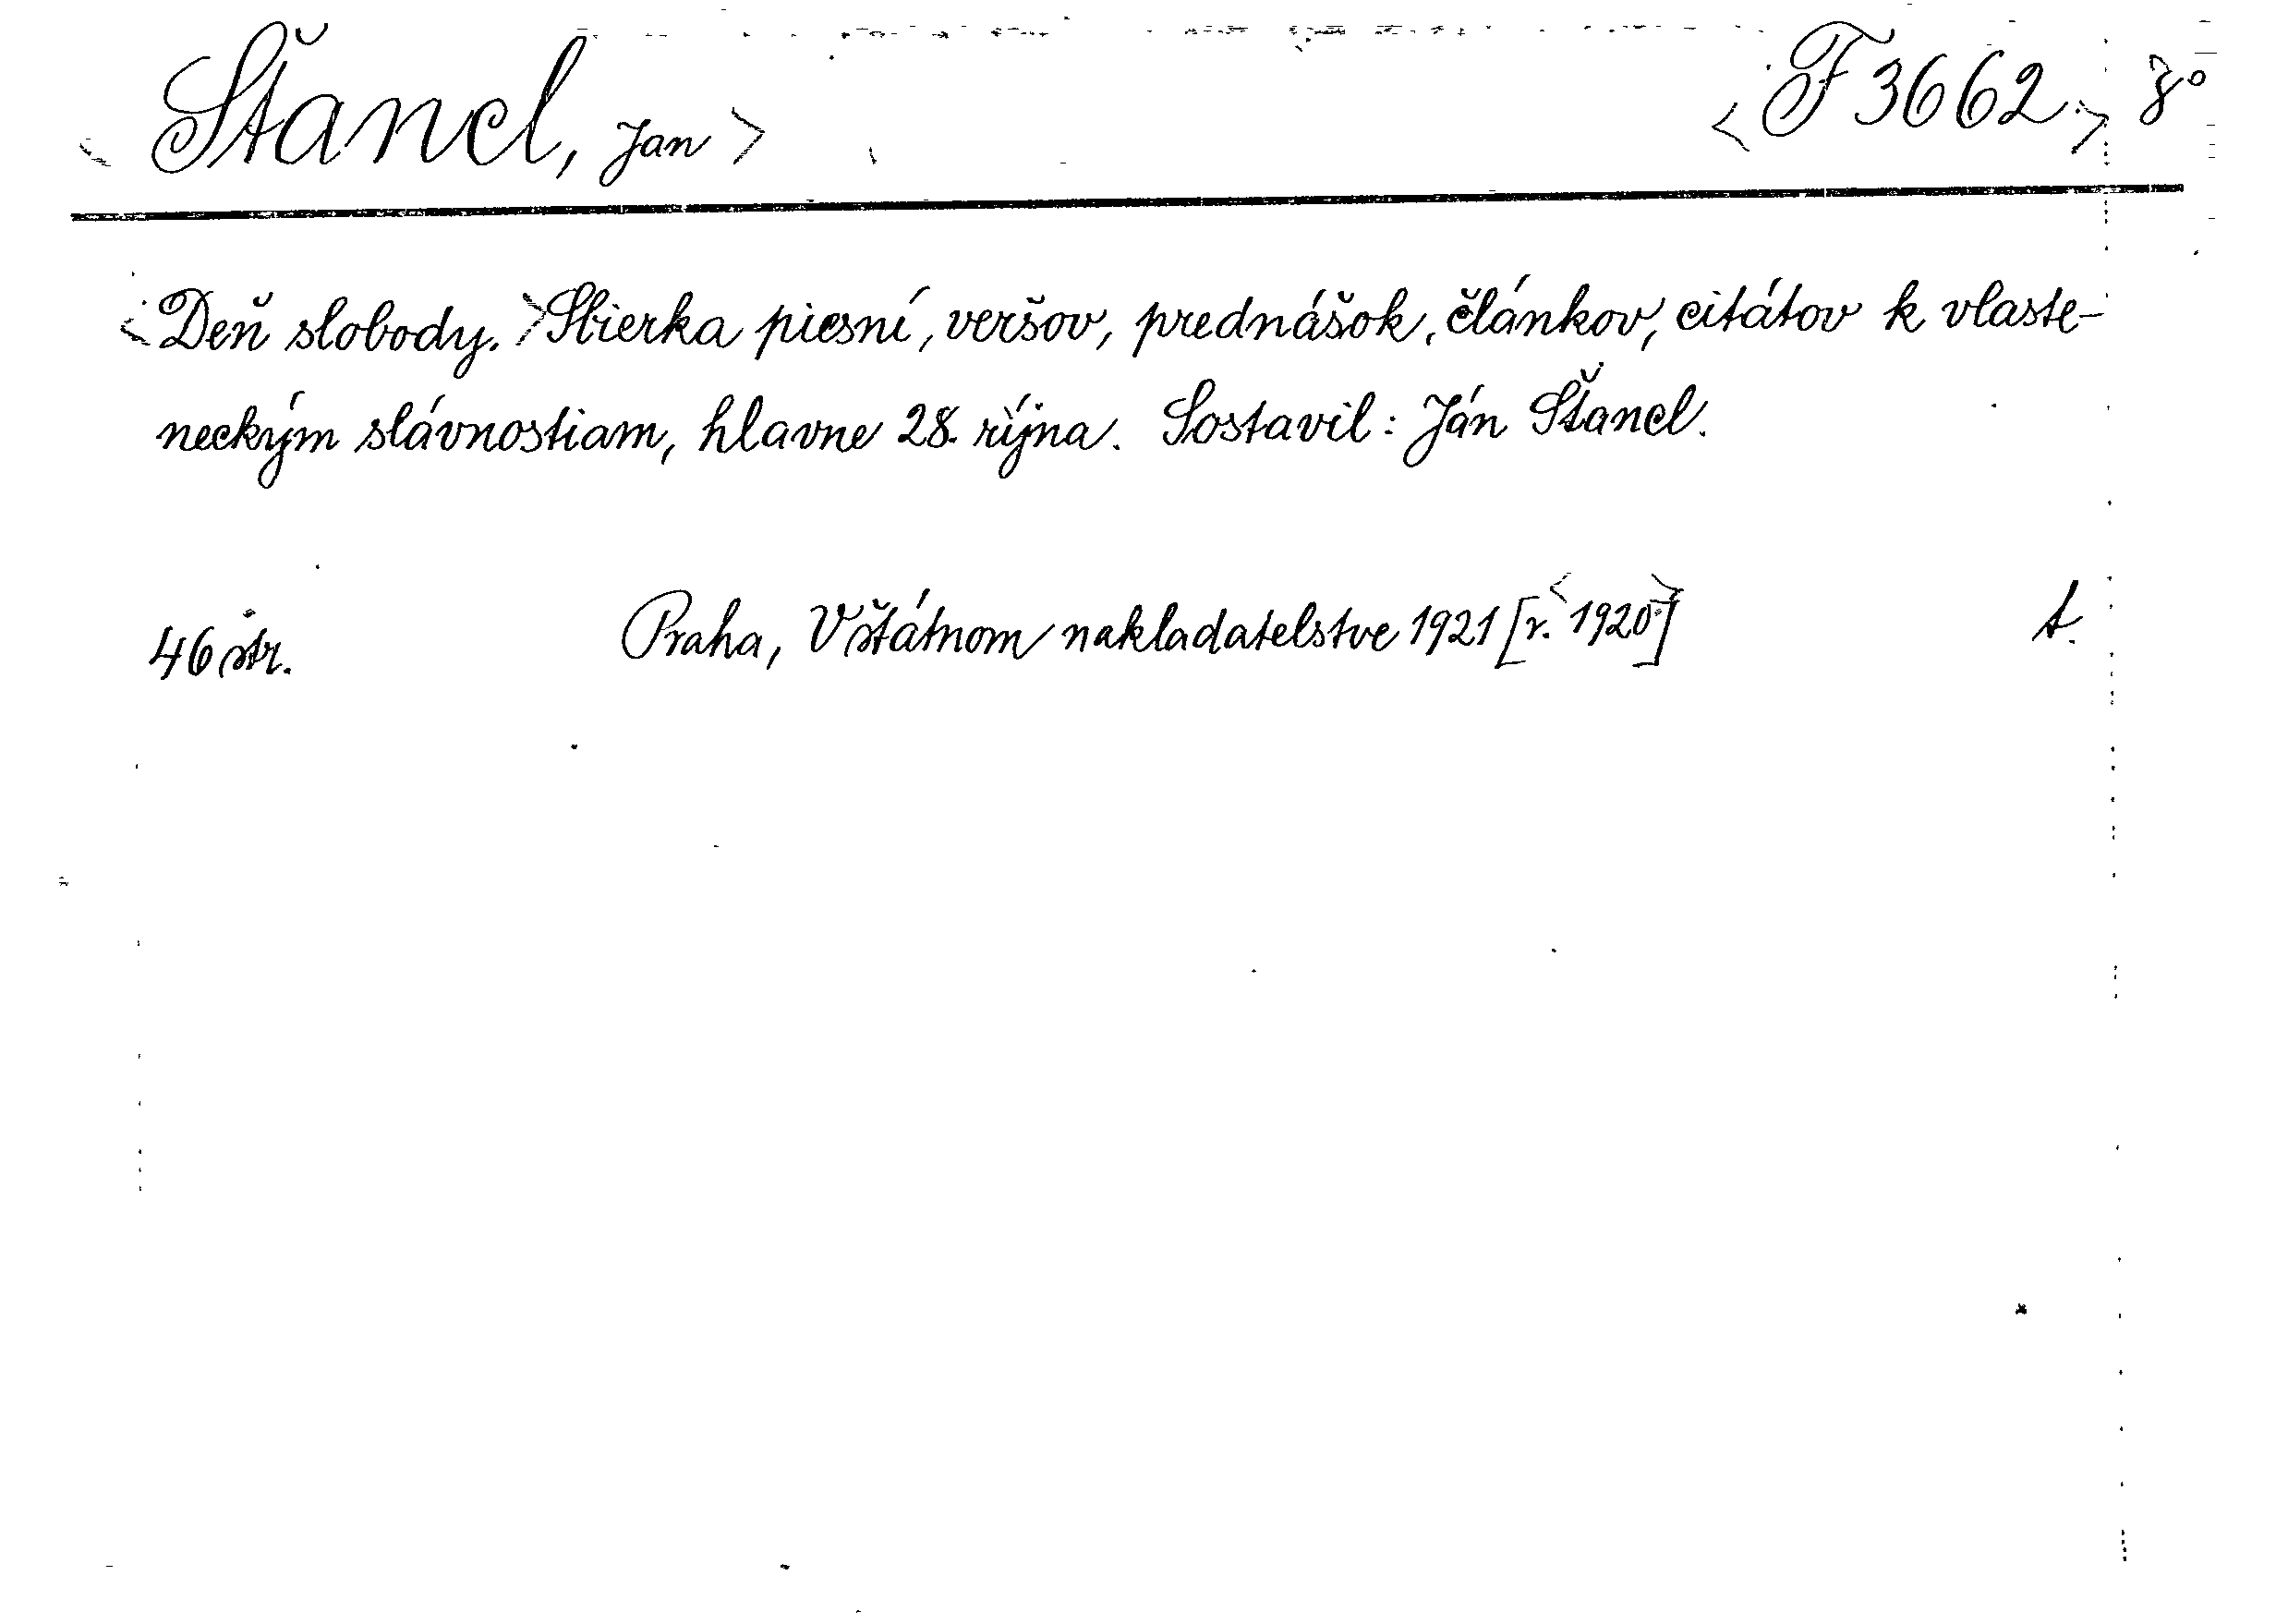 <Štancl, Jan> <F 3662> 8°
<Deň slobody.> Sbierka piesní, veršov, prednášok, článkov, citátov k vlaste-
neckým slávnostiam, hlavne 28. října. Sostavil: Ján Štancl.
46 str. Praha, V štátnom nakladatelstve 1921 [v. <1920>] t.